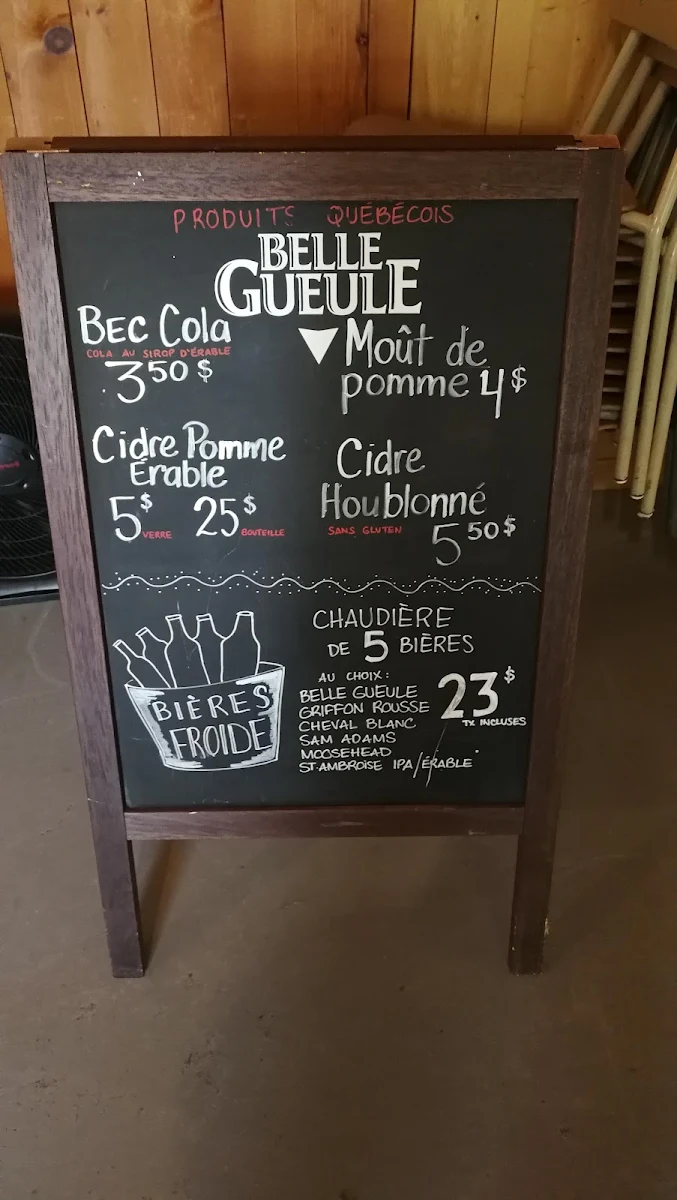 PRODUITS QUÉBÉCOIS
BELLE
GUEULE
Bec Cola
COLA AU SIROP D'ÉRABLE
3 50 $
Moût de
pomme 4$
Cidre Pomme
Érable
5$ VERRE 25$ BOUTEILLE
Cidre
Houblonné
SANS GLUTEN
5 50 $
BIÈRES
FROIDE
CHAUDIÈRE
DE 5 BIÈRES
AU CHOIX:
BELLE GUEULE
GRIFFON ROUSSE
CHEVAL BLANC
SAM ADAMS
MOOSEHEAD
ST-AMBROISE IPA/ÉRABLE
23$
TX INCLUSES